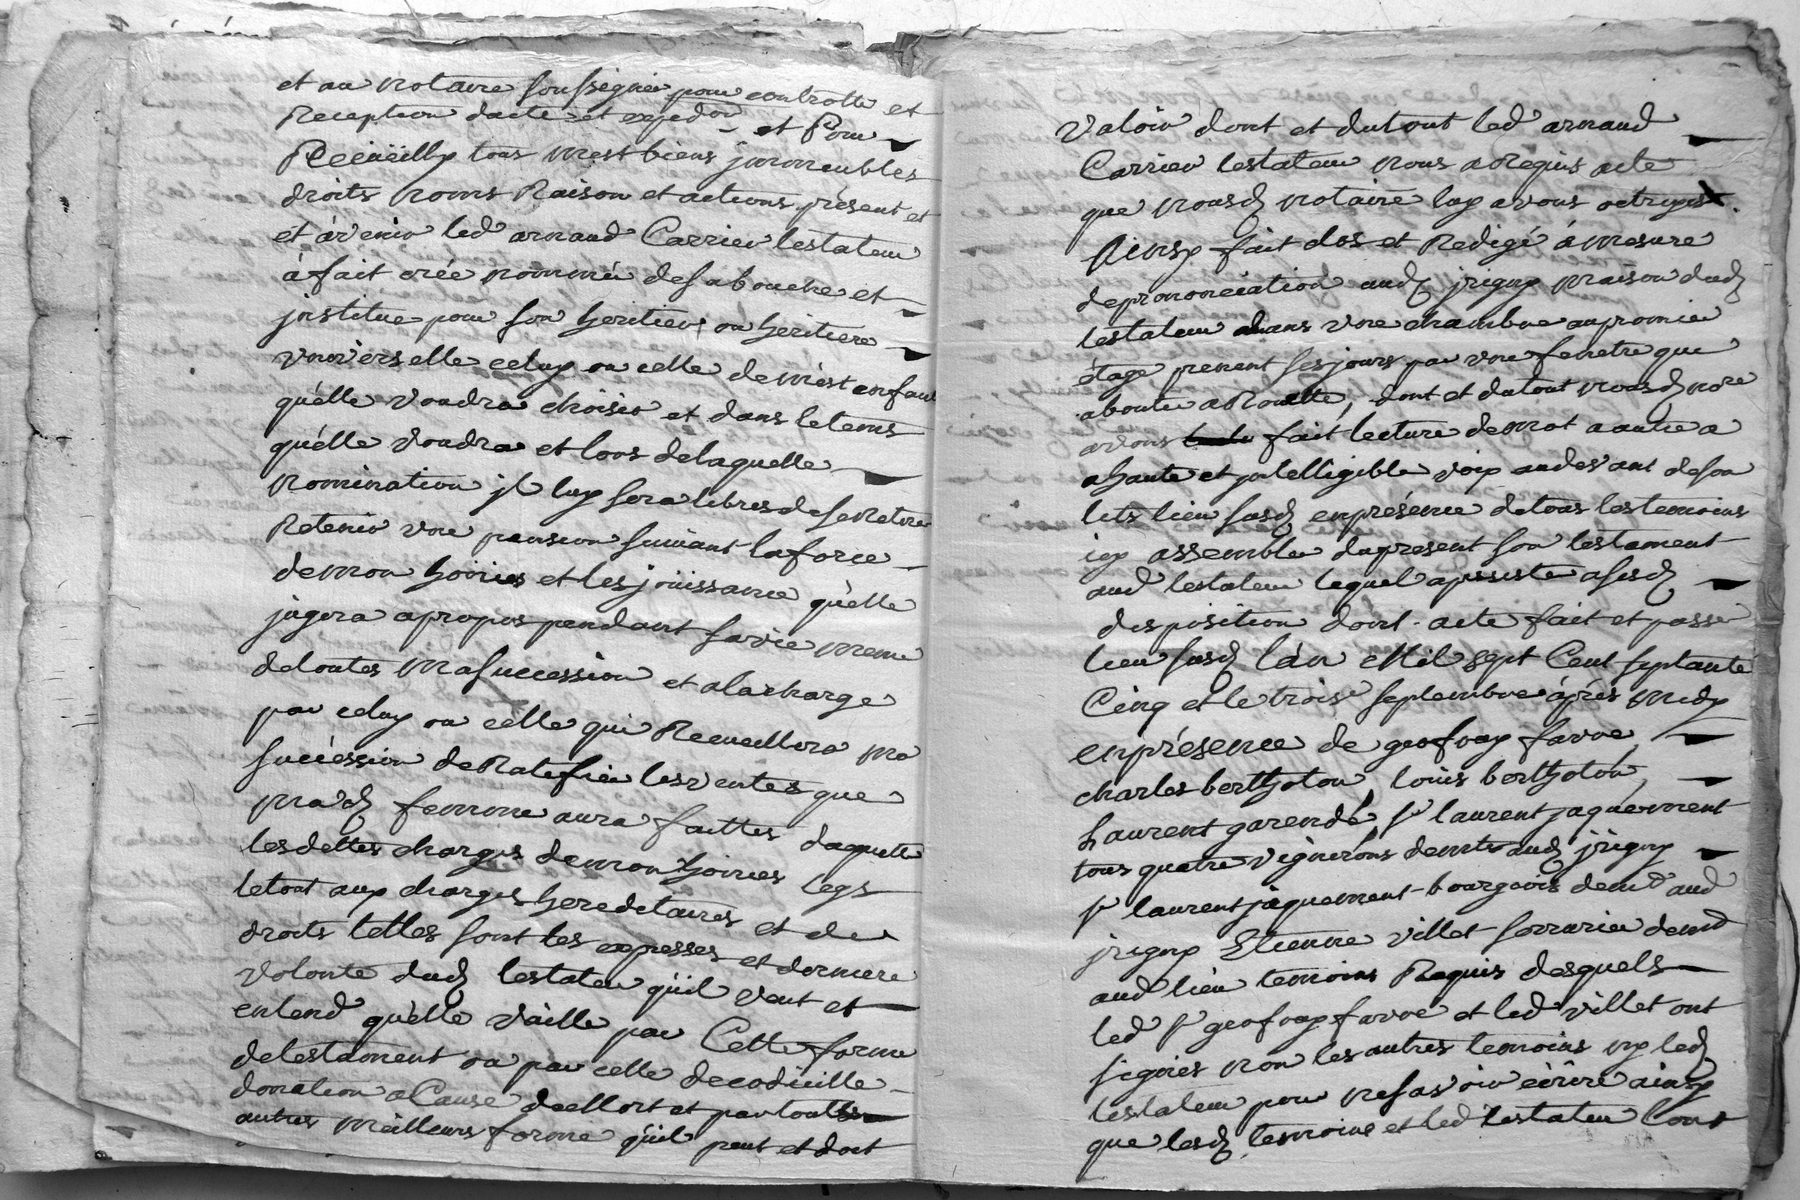 et au notaire soussigné pour controlle et
Reception dacte et expedon et Pour
Recueilly tous mest biens jmmeubles
droits noms Raison et actions présent et
et àvenir led arnaud Carrier testateur
à fait crée nommé de sa bouche et
jnstitue pour son heritiers ou heritiere
vniverselle celuy ou celle de mest enfant
quélle voudra choisir et dans letems
quélle voudra et lors delaquelle
nomination jl luy sera libres de se
Retenir vne pension suivant laforce
demon hoiries et les joüissance quélle
jugera apropos pendant savie meme
detoutes ma succession et alacharge
par celuy ou celle qui Recueillera ma
succéssion de Ratifier les ventes que
mad femme aura faittes daquitte
les dettes charges demon hoiries legs
letout aux charges hereditaires et de
droits telles sont les expresses et derniere
volonte dud testateur quil veut et
entend quélle vaille par Cette forme
detestament ou par celle decodicille
donation a Cause de Mort et par toutte
autres meilleurs forme quil peut et doit
valoir dont et dutout led arnaud
Carrier testateur nous a Requis acte
que nousd notaire luy avons octroyes
Ainsy fait clos et Redigé à mesure
de prononciation aud jrigny maison dud
testateur dans vne chambre au premier
étage prenent ses jours par vne fenetre que
aboute a Rouette, dont et dutout nousd nore
avons fait lecture de mot a autre a
ahaute et jntelligible voix au devant de son
lits lieu susd enprésence detous les temoins
icy assemblé dapresent son testament
aud testateur lequel a persisté a sesd
disposition dont acte fait et passé
lieu susd lán Mil sept Cent septante
Cinq et le trois septembre àprés midy
enprésence de geofray favre
charles berthoton, louis berthotón,
Laurent garendé, sr laurent jaquemment
tous quatre vignerons demts aud jrigny
sr laurent jaquemment bourgeois demt aud
jrigny Etienne villet serrurier demt
aud lieu temoins Requis desquels
led sr geofray favre et led villet ont
signés non les autres temoins ny led
testateur pour ne savoir écrire ainsy
que lesd temoins et led testateur lont